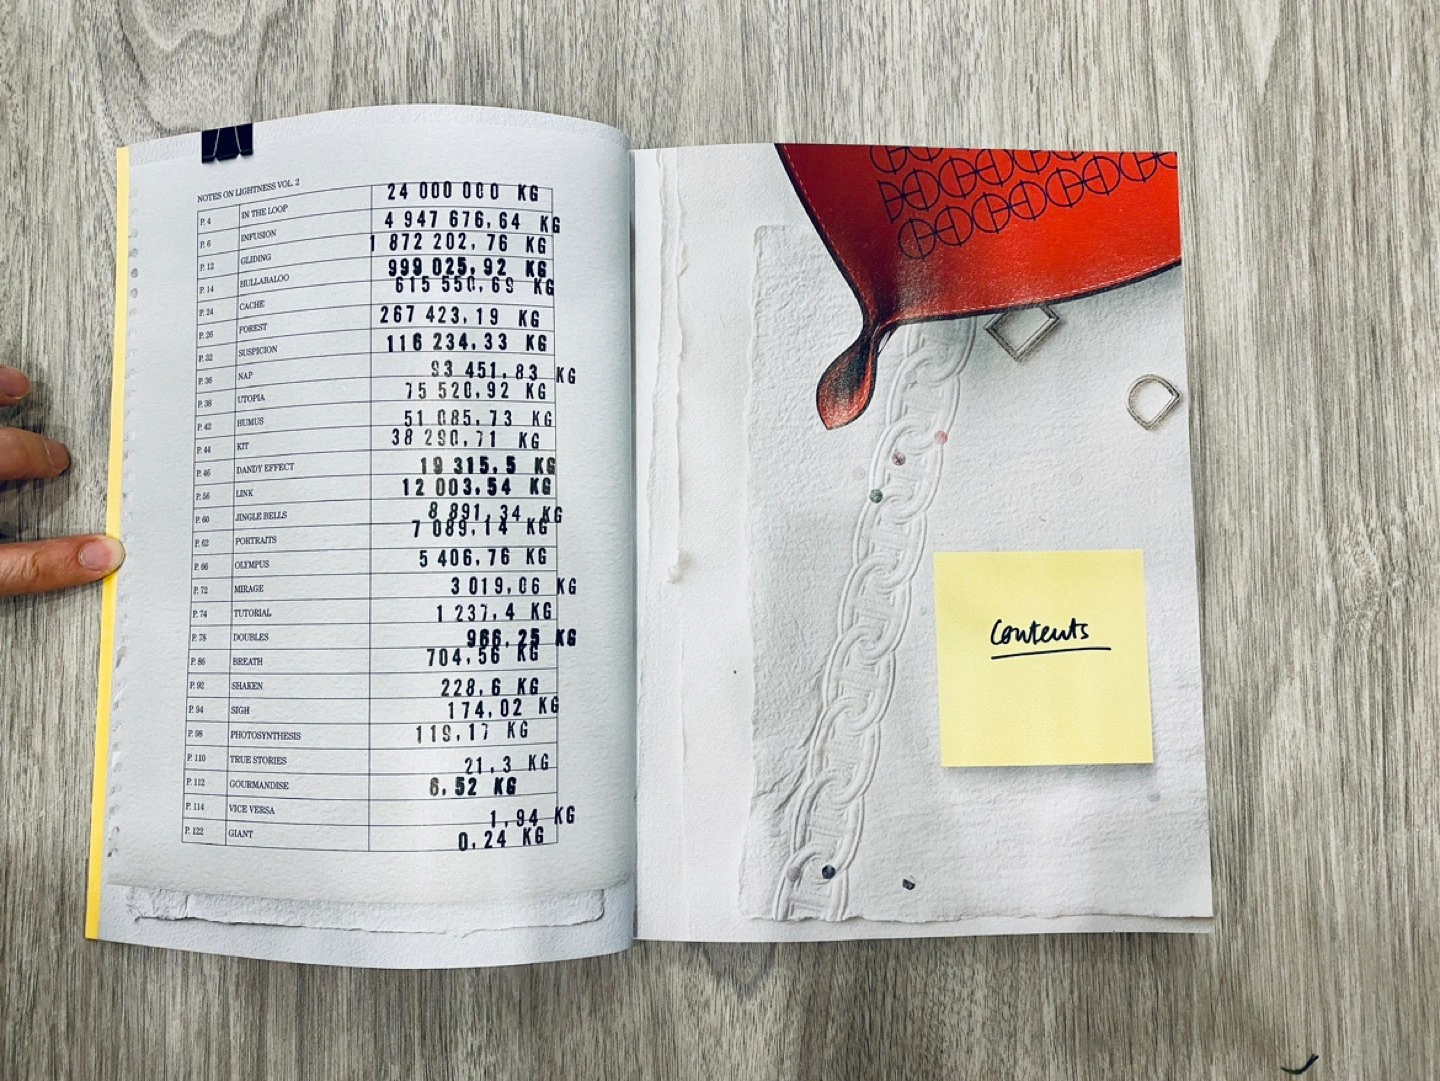 NOTES ON LIGHTNESS VOL. 2
P. 4 IN THE LOOP 24 000 000 KG
P. 6 INFUSION 4 947 676,64 KG
P. 12 GLIDING 1 872 202,76 KG
P. 14 HULLABALOO 999 025,92 KG
P. 24 CACHE 615 550,69 KG
P. 26 FOREST 267 423,19 KG
P. 32 SUSPICION 116 234,33 KG
P. 36 NAP 93 451,83 KG
P. 38 UTOPIA 75 520,92 KG
P. 42 HUMUS 51 085,73 KG
P. 44 KIT 38 290,71 KG
P. 46 DANDY EFFECT 19 315,5 KG
P. 56 LINK 12 003,54 KG
P. 60 JINGLE BELLS 8 891,34 KG
P. 62 PORTRAITS 7 089,14 KG
P. 66 OLYMPUS 5 406,76 KG
P. 72 MIRAGE 3 019,06 KG
P. 74 TUTORIAL 1 237,4 KG
P. 78 DOUBLES 966,25 KG
P. 86 BREATH 704,56 KG
P. 92 SHAKEN 228,6 KG
P. 94 SIGH 174,02 KG
P. 98 PHOTOSYNTHESIS 119,17 KG
P. 110 TRUE STORIES 21,3 KG
P. 112 GOURMANDISE 6,52 KG
P. 114 VICE VERSA 1,94 KG
P. 122 GIANT 0,24 KG
Contents